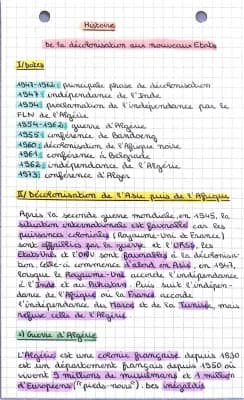 Histoire
De la décolonisation aux nouveaux Etats
I/ Dates
1947-1962: principale phase de décolonisation
1947: indépendance de l'Inde
1954: proclamation de l'indépendance par le
FLN de l'Algérie
1954-1962: guerre d'Algérie
1955: conférence de Bandoeng
1960: décolonisation de l'Afrique noire
1961: conférence à Belgrade
1962: indépendance de l'Algérie
1973: conférence d'Alger
II/ Décolonisation de l'Asie puis de l'Afrique
Après la seconde guerre mondiale, en 1945, la
situation internationale est favorable car les
puissances coloniales (Royaume-Uni & France)
sont affaiblies par la guerre et l'URSS, les
Etats-Unis et l'ONU sont favorables à la décolonisa-
tion. Celle-ci commence d'abord en Asie, en 1947,
lorsque le Royaume-Uni accorde l'indépendance
à l'Inde et au Pakistan. Puis suit l'indépen-
dance de l'Afrique où la France accorde
l'indépendance du Maroc et de la Tunisie mais
refuse celle de l'Algérie.
a) Guerre d'Algérie
L'Algérie est une colonie française depuis 1830
et un département français depuis 1950 où
vivent 9 millions de musulmans et 1 million
d'Européens ("pieds-noirs"). Des inégalités